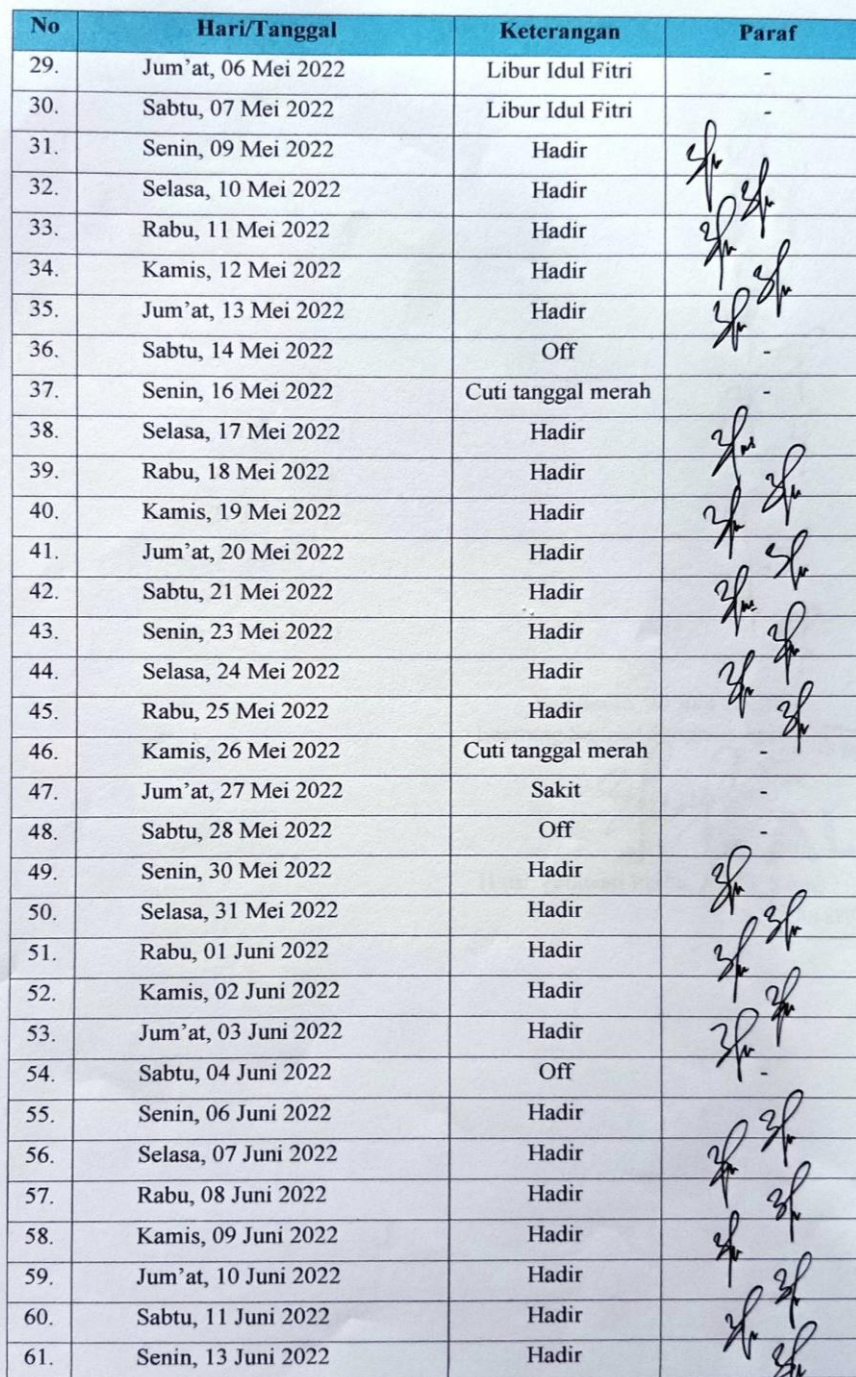 No Hari/Tanggal Keterangan Paraf
29. Jum'at, 06 Mei 2022 Libur Idul Fitri -
30. Sabtu, 07 Mei 2022 Libur Idul Fitri -
31. Senin, 09 Mei 2022 Hadir
32. Selasa, 10 Mei 2022 Hadir
33. Rabu, 11 Mei 2022 Hadir
34. Kamis, 12 Mei 2022 Hadir
35. Jum'at, 13 Mei 2022 Hadir
36. Sabtu, 14 Mei 2022 Off -
37. Senin, 16 Mei 2022 Cuti tanggal merah -
38. Selasa, 17 Mei 2022 Hadir
39. Rabu, 18 Mei 2022 Hadir
40. Kamis, 19 Mei 2022 Hadir
41. Jum'at, 20 Mei 2022 Hadir
42. Sabtu, 21 Mei 2022 Hadir
43. Senin, 23 Mei 2022 Hadir
44. Selasa, 24 Mei 2022 Hadir
45. Rabu, 25 Mei 2022 Hadir
46. Kamis, 26 Mei 2022 Cuti tanggal merah -
47. Jum'at, 27 Mei 2022 Sakit -
48. Sabtu, 28 Mei 2022 Off -
49. Senin, 30 Mei 2022 Hadir
50. Selasa, 31 Mei 2022 Hadir
51. Rabu, 01 Juni 2022 Hadir
52. Kamis, 02 Juni 2022 Hadir
53. Jum'at, 03 Juni 2022 Hadir
54. Sabtu, 04 Juni 2022 Off -
55. Senin, 06 Juni 2022 Hadir
56. Selasa, 07 Juni 2022 Hadir
57. Rabu, 08 Juni 2022 Hadir
58. Kamis, 09 Juni 2022 Hadir
59. Jum'at, 10 Juni 2022 Hadir
60. Sabtu, 11 Juni 2022 Hadir
61. Senin, 13 Juni 2022 Hadir